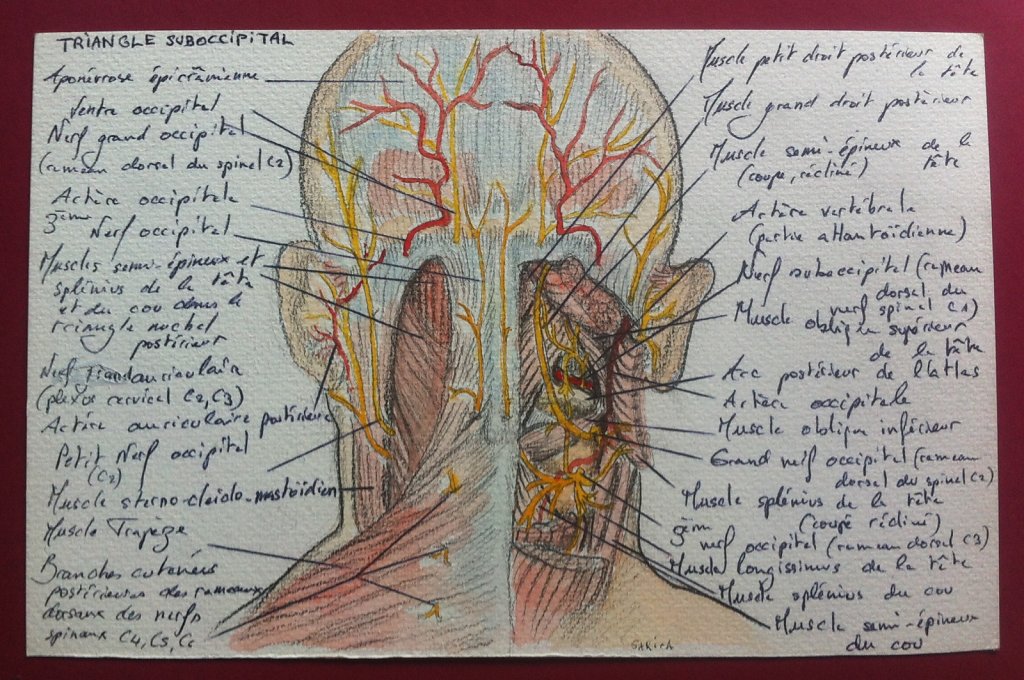 TRIANGLE SUBOCCIPITAL
Aponévrose épicrânienne
Ventre occipital
Nerf grand occipital
(rameau dorsal du spinal C2)
Artère occipitale
3ème Nerf occipital
Muscles semi-épineux et
splénius de la tête
et du cou dans le
triangle nuchal
postérieur
Nerf grand auriculaire
(plexus cervical C2, C3)
Artère auriculaire postérieure
Petit Nerf occipital
(C2)
Muscle sterno-cleido-mastoïdien
Muscle Trapèze
Branches cutanées
postérieures des rameaux
dorsaux des nerfs
spinaux C4, C5, C6
Muscle petit droit postérieur de
la tête
Muscle grand droit postérieur
Muscle semi-épineux de la
tête
(coupé, récliné)
Artère vertébrale
(partie atlantoïdienne)
Nerf suboccipital (rameau
dorsal du
nerf spinal C1)
Muscle oblique supérieur
de la tête
Arc postérieur de l'atlas
Artère occipitale
Muscle oblique inférieur
Grand nerf occipital (rameau
dorsal du spinal C2)
Muscle splénius de la tête
(coupé récliné)
3èm
nerf occipital (rameau dorsal C3)
Muscle longissimus de la tête
Muscle splénius du cou
Muscle semi-épineux
du cou